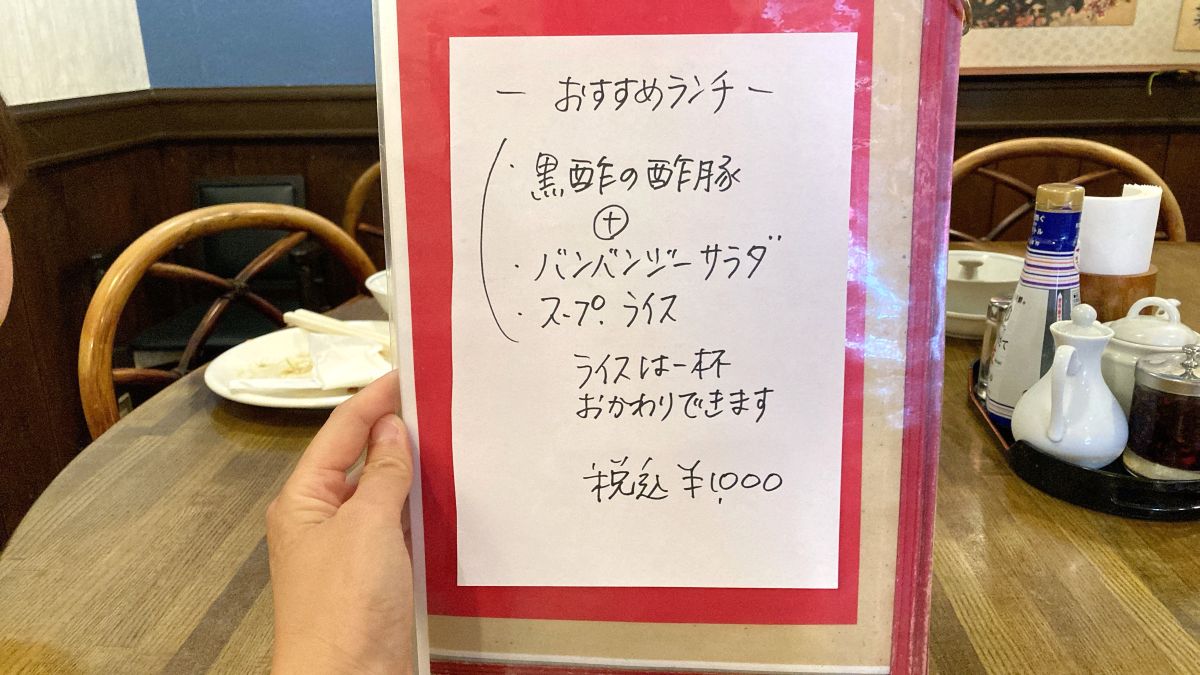 ー おすすめランチ ー
・黒酢の酢豚
⊕
・バンバンジーサラダ
・スープ. ライス
ライスは一杯
おかわりできます
税込 ¥1,000